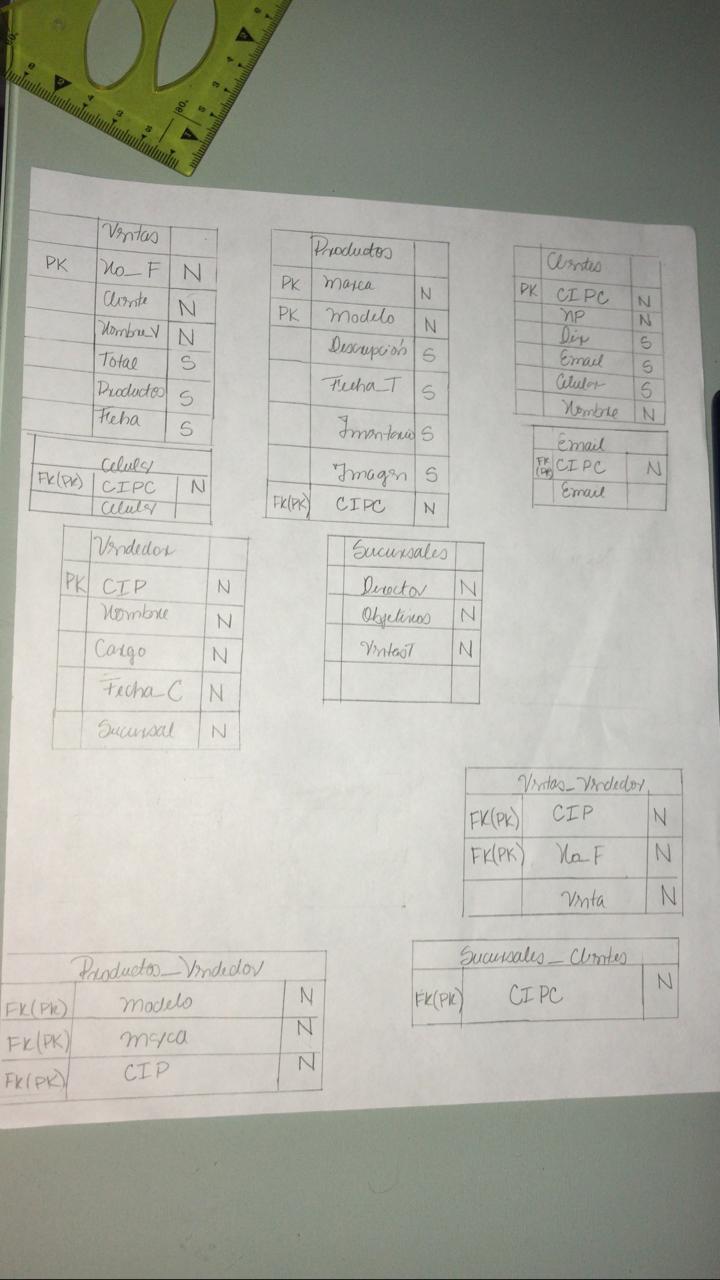 Ventas
PK No_F N
Cliente N
Nombre V N
Total S
Productos S
Fecha S
Productos
PK Marca N
PK Modelo N
Descripción S
Fecha_T S
Inventario S
Imagen S
FK(PK) CIPC N
Clientes
PK CIPC N
NP N
Dir S
Email S
Celular S
Nombre N
Celular
FK(PK) CIPC N
Celular
Email
FK(PK) CIPC N
Email
Vendedor
PK CIP N
Nombre N
Cargo N
Fecha_C N
Sucursal N
Sucursales
Director N
Objetivos N
VentasT N
Ventas_Vendedor
FK(PK) CIP N
FK(PK) No_F N
Venta N
Productos_Vendedor
FK(PK) Modelo N
FK(PK) Marca N
FK(PK) CIP N
Sucursales_Clientes
FK(PK) CIPC N